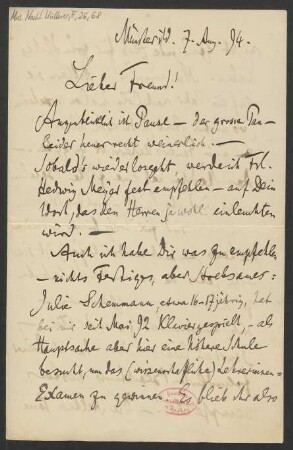 Mus. Nachl. Wüllner, F., 26,68
Münster i/W. 7. Aug. 94.
Lieber Freund!
Augenblicklich ist Pause – der grosse Pan –
leider heuer recht weinerlich. –
Sobald's wieder losgeht werde ich Frl.
Hedwig Meyer fest empfehlen – auf Dein
Wort, das den Herren ja wohl einleuchten
wird. –
Auch ich habe Dir was zu empfehlen
– nichts Fertiges, aber Strebsames:
Julie Schemmann, etwa 16–17jährig, hat
bei mir seit Mai 92 Klavier gespielt, – als
Hauptsache aber hier eine höhere Schule
besucht, um das (wissenschaftliche) Lehrerinnen-
Examen zu gewinnen. Es blieb ihr also